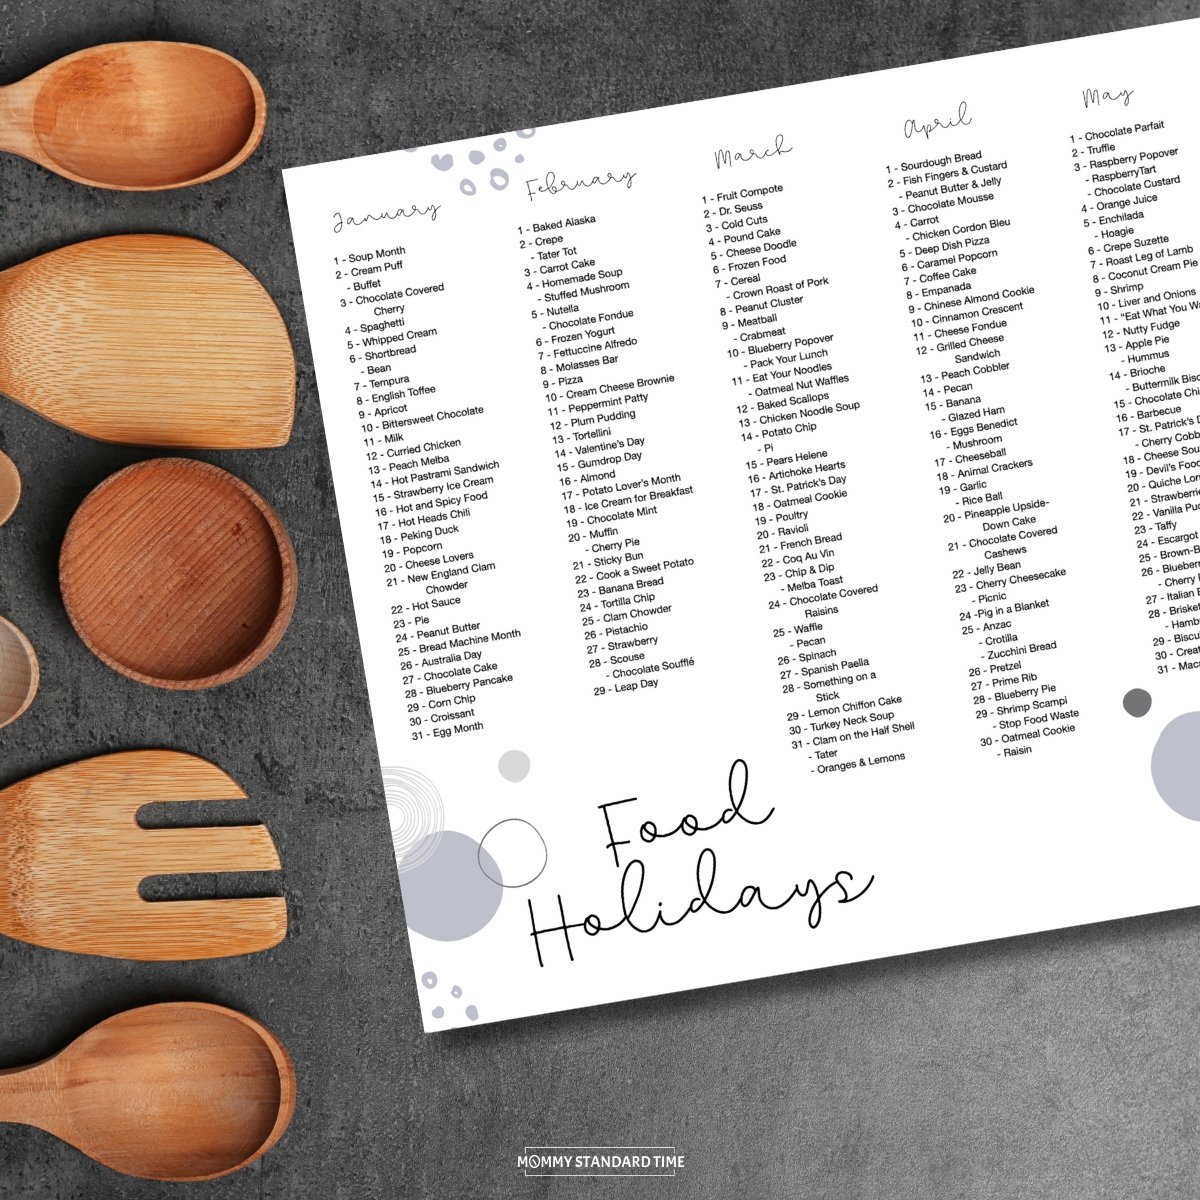 January
1 - Soup Month
2 - Cream Puff
- Buffet
3 - Chocolate Covered
Cherry
4 - Spaghetti
5 - Whipped Cream
6 - Shortbread
- Bean
7 - Tempura
8 - English Toffee
9 - Apricot
10 - Bittersweet Chocolate
11 - Milk
12 - Curried Chicken
13 - Peach Melba
14 - Hot Pastrami Sandwich
15 - Strawberry Ice Cream
16 - Hot and Spicy Food
17 - Hot Heads Chili
18 - Peking Duck
19 - Popcorn
20 - Cheese Lovers
21 - New England Clam
Chowder
22 - Hot Sauce
23 - Pie
24 - Peanut Butter
25 - Bread Machine Month
26 - Australia Day
27 - Chocolate Cake
28 - Blueberry Pancake
29 - Corn Chip
30 - Croissant
31 - Egg Month
February
1 - Baked Alaska
2 - Crepe
- Tater Tot
3 - Carrot Cake
4 - Homemade Soup
- Stuffed Mushroom
5 - Nutella
- Chocolate Fondue
6 - Frozen Yogurt
7 - Fettuccine Alfredo
8 - Molasses Bar
9 - Pizza
10 - Cream Cheese Brownie
11 - Peppermint Patty
12 - Plum Pudding
13 - Tortellini
14 - Valentine's Day
15 - Gumdrop Day
16 - Almond
17 - Potato Lover's Month
18 - Ice Cream for Breakfast
19 - Chocolate Mint
20 - Muffin
- Cherry Pie
21 - Sticky Bun
22 - Cook a Sweet Potato
23 - Banana Bread
24 - Tortilla Chip
25 - Clam Chowder
26 - Pistachio
27 - Strawberry
28 - Scouse
- Chocolate Soufflé
29 - Leap Day
March
1 - Fruit Compote
2 - Dr. Seuss
3 - Cold Cuts
4 - Pound Cake
5 - Cheese Doodle
6 - Frozen Food
7 - Cereal
- Crown Roast of Pork
8 - Peanut Cluster
9 - Meatball
- Crabmeat
10 - Blueberry Popover
- Pack Your Lunch
11 - Eat Your Noodles
- Oatmeal Nut Waffles
12 - Baked Scallops
13 - Chicken Noodle Soup
14 - Potato Chip
- Pi
15 - Pears Helene
16 - Artichoke Hearts
17 - St. Patrick's Day
18 - Oatmeal Cookie
19 - Poultry
20 - Ravioli
21 - French Bread
22 - Coq Au Vin
23 - Chip & Dip
- Melba Toast
24 - Chocolate Covered
Raisins
25 - Waffle
- Pecan
26 - Spinach
27 - Spanish Paella
28 - Something on a
Stick
29 - Lemon Chiffon Cake
30 - Turkey Neck Soup
31 - Clam on the Half Shell
- Tater
- Oranges & Lemons
April
1 - Sourdough Bread
2 - Fish Fingers & Custard
- Peanut Butter & Jelly
3 - Chocolate Mousse
4 - Carrot
- Chicken Cordon Bleu
5 - Deep Dish Pizza
6 - Caramel Popcorn
7 - Coffee Cake
8 - Empanada
9 - Chinese Almond Cookie
10 - Cinnamon Crescent
11 - Cheese Fondue
12 - Grilled Cheese
Sandwich
13 - Peach Cobbler
14 - Pecan
15 - Banana
- Glazed Ham
16 - Eggs Benedict
- Mushroom
17 - Cheeseball
18 - Animal Crackers
19 - Garlic
- Rice Ball
20 - Pineapple Upside-
Down Cake
21 - Chocolate Covered
Cashews
22 - Jelly Bean
23 - Cherry Cheesecake
- Picnic
24 -Pig in a Blanket
25 - Anzac
- Crotilla
- Zucchini Bread
26 - Pretzel
27 - Prime Rib
28 - Blueberry Pie
29 - Shrimp Scampi
- Stop Food Waste
30 - Oatmeal Cookie
- Raisin
May
1 - Chocolate Parfait
2 - Truffle
3 - Raspberry Popover
- RaspberryTart
- Chocolate Custard
4 - Orange Juice
5 - Enchilada
- Hoagie
6 - Crepe Suzette
7 - Roast Leg of Lamb
8 - Coconut Cream Pie
9 - Shrimp
10 - Liver and Onions
11 - "Eat What You
12 - Nutty Fudge
13 - Apple Pie
- Hummus
14 - Brioche
- Buttermilk
15 - Chocolate
16 - Barbecue
17 - St. Patrick's
- Cherry
18 - Cheese
19 - Devil's Food
20 - Quiche
21 -
22 - Vanilla
23 - Taffy
24 - Escargot
25 -
26 -
- Cherry
27 - Italian
28 - Brisket
-
29 -
30 -
31 -
Food
Holidays
MOMMY STANDARD TIME